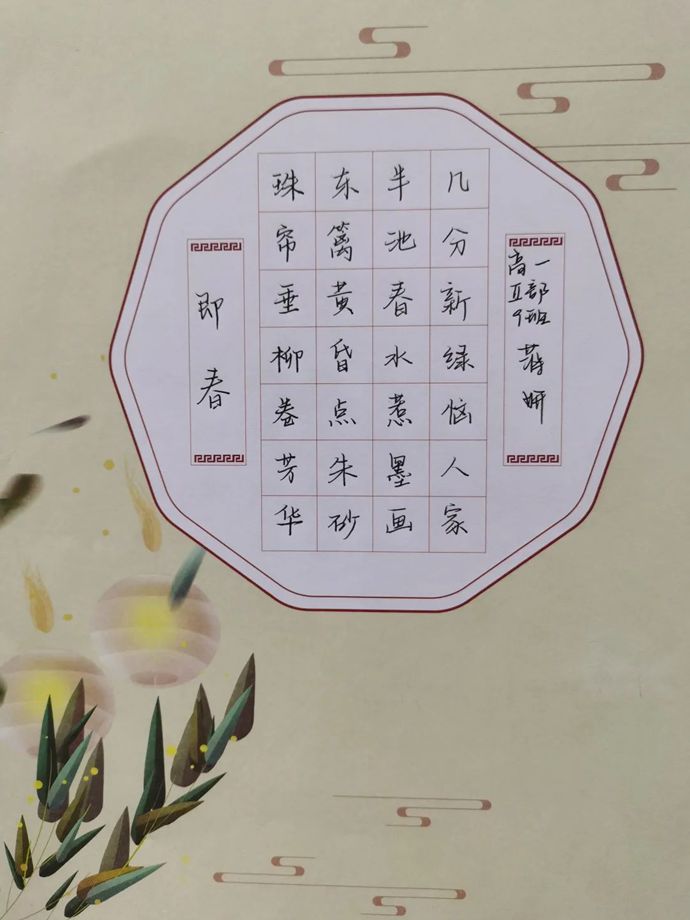 即春
珠帘垂柳卷芳华
东篱黄昏点朱砂
半池春水惹墨画
几分新绿恼人家
高一
部
班
蒋妍